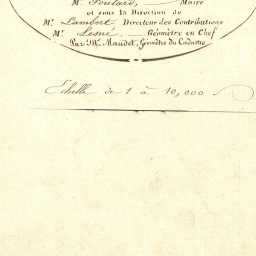 Mr Poulard, Maire
et sous la Direction de
Mr Lambert Directeur des Contributions
Mr Lesné, Géomètre en Chef
Par Mr Maudet, Géomètre du Cadastre
Echelle de 1 à 10,000